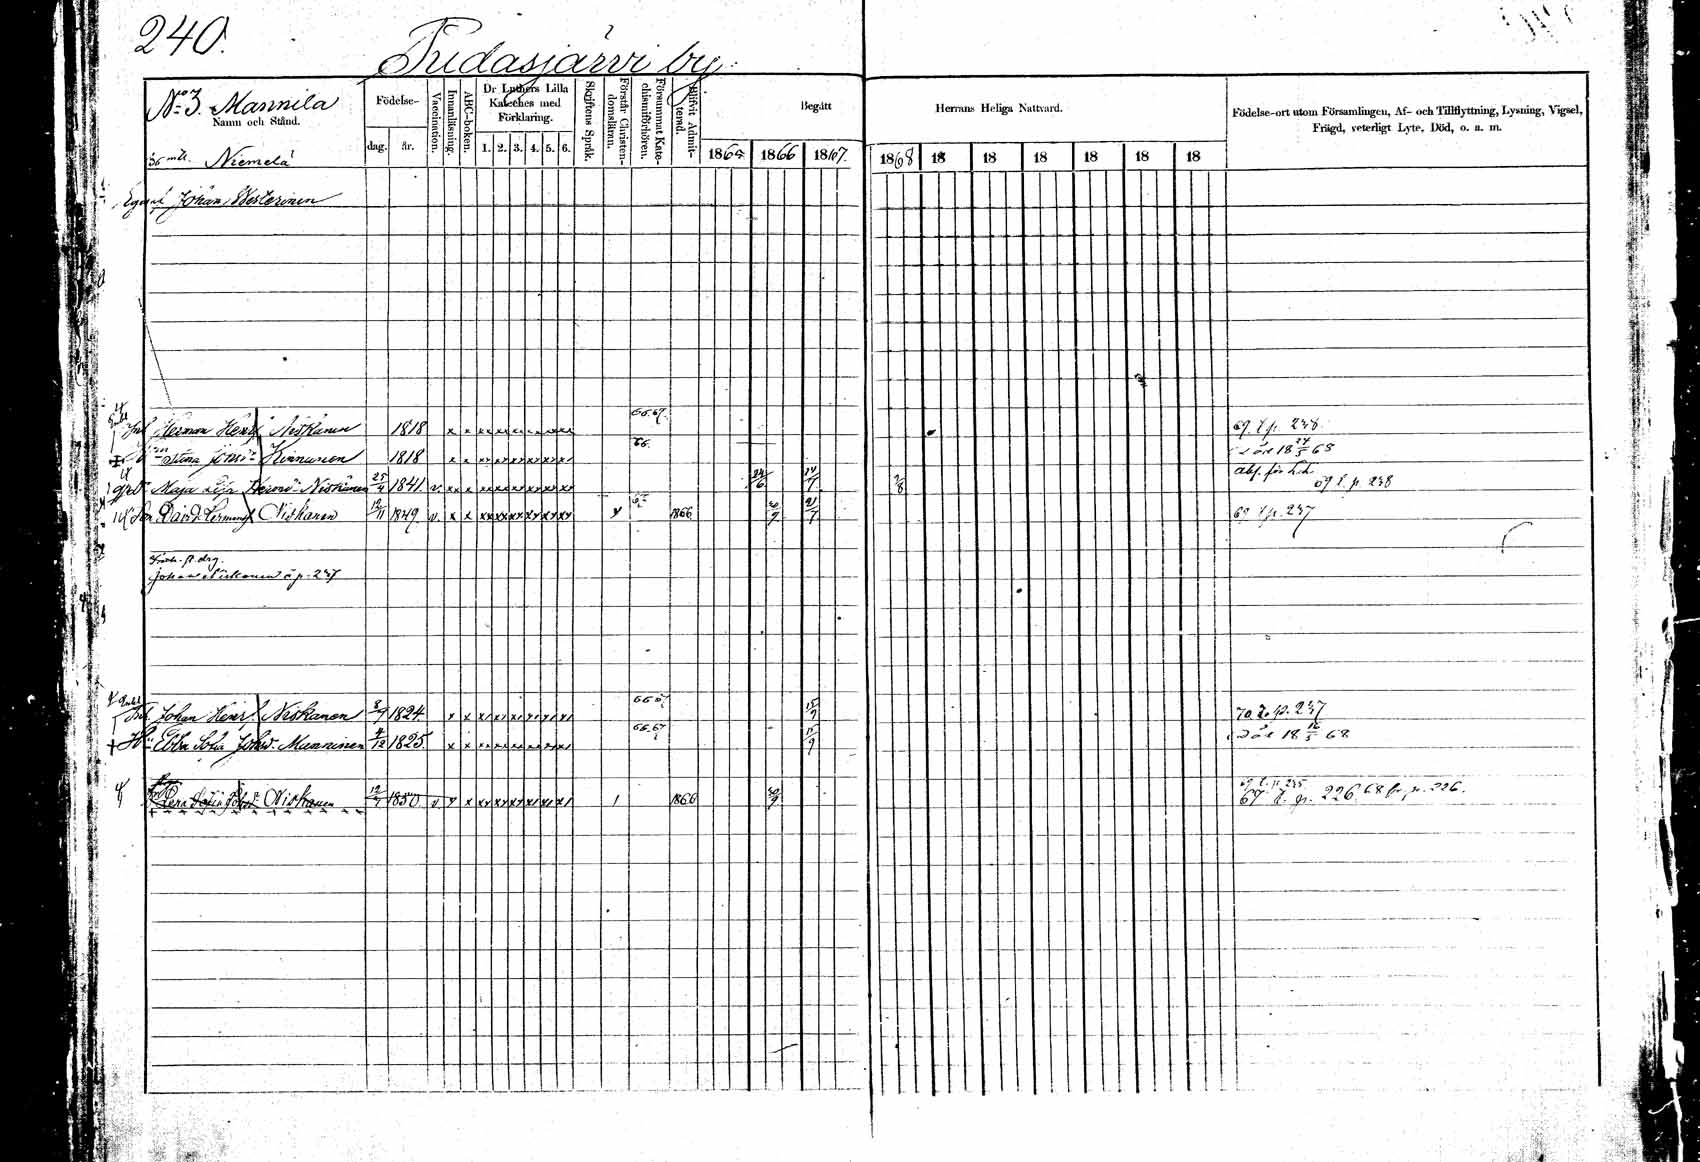 240.
Pudasjärvi by.
No 3. Mannila
Namn och Stånd.
Niemelä
Födelse-
dag. år.
Vaccination.
Innanläsning.
ABC-boken.
Dr Luthers Lilla Kateches med Förklaring.
1. 2. 3. 4. 5. 6.
Skriftens Språk.
Förstår Christendomslämn.
Försummat Katechismiförhören.
Blifvit Admitterad.
Begått
1865 1866 1867.
Herrans Heliga Nattvard.
1868 18 18 18 18 18 18
Födelse-ort utom Församlingen, Af- och Tillflyttning, Lysning, Vigsel,
Frägd, veterligt Lyte, Död, o. a. m.
Johan Westerinen
Herman Henr Niskanen 1818 66.67. 69 t. p. 238
Stina Johsd. Kinnunen 1818 66. död 18 24/5 68
Maja Lisa Hermd. Niskanen 25/4 1841. v. 24/6 14/7 2/8 69 t. p. 238
Son David Hermans Niskanen 12/11 1849. v. 1866 30/9 21/7 69 t. p. 237
Johan Niskanen p. 237
Johan Henr Niskanen 8/9 1824 66 67 15/9 70 t. p. 237
Hu Ebba Sofia Johsd. Manninen 4/12 1825. 66.67 15/9 död 18 16/5 68
Lena Sofia Johsd. Niskanen 12/7 1850 v. 1866 30/9 69 t. p. 235
67 t. p. 226. 68 fr. p. 226.